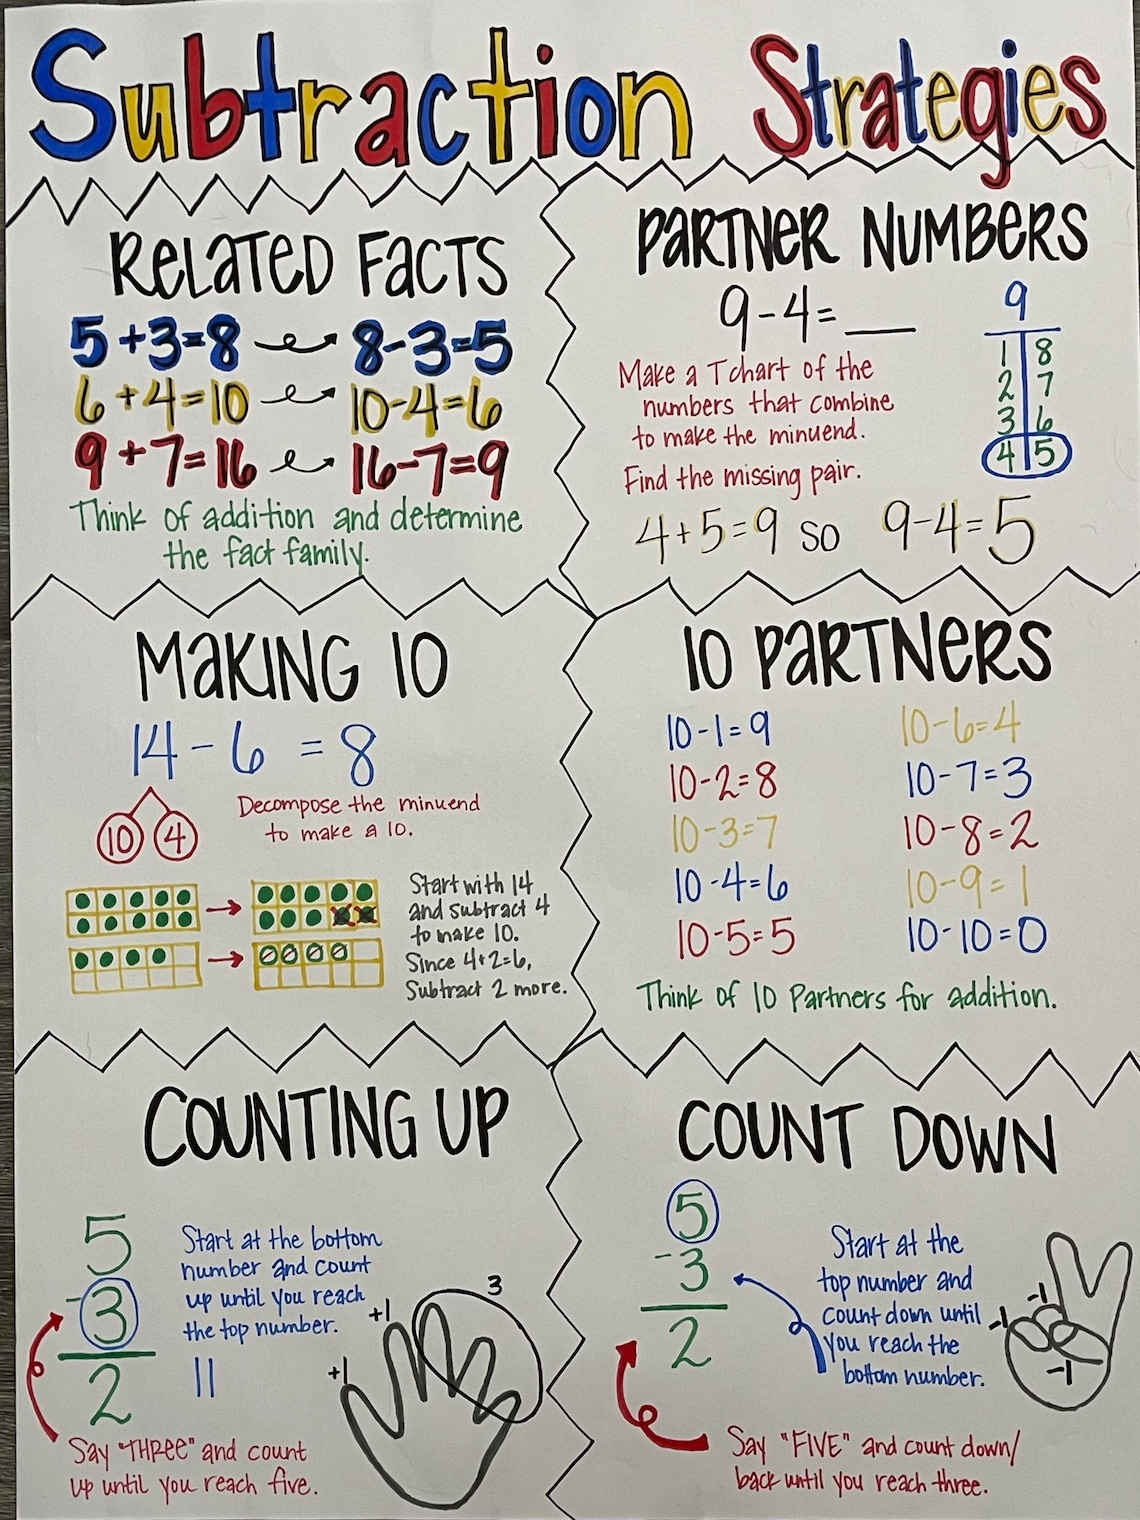 Subtraction Strategies
RELATED FACTS
5+3=8 8-3=5
6+4=10 10-4=6
9+7=16 16-7=9
Think of addition and determine
the fact family.
PARTNER NUMBERS
9-4=___
Make a T chart of the
numbers that combine
to make the minuend.
Find the missing pair.
9
1 8
2 7
3 6
4 5
4+5=9 so 9-4=5
MAKING 10
14-6=8
10 4
Decompose the minuend
to make a 10.
Start with 14
and subtract 4
to make 10.
Since 4+2=6,
Subtract 2 more.
10 PARTNERS
10-1=9 10-6=4
10-2=8 10-7=3
10-3=7 10-8=2
10-4=6 10-9=1
10-5=5 10-10=0
Think of 10 Partners for addition.
COUNTING UP
5
-3
2
Start at the bottom
number and count
up until you reach
the top number.
||
+1
+1
3
Say "THREE" and count
up until you reach five.
COUNT DOWN
5
-3
2
Start at the
top number and
count down until
you reach the
bottom number.
-1
-1
-1
Say "FIVE" and count down/
back until you reach three.